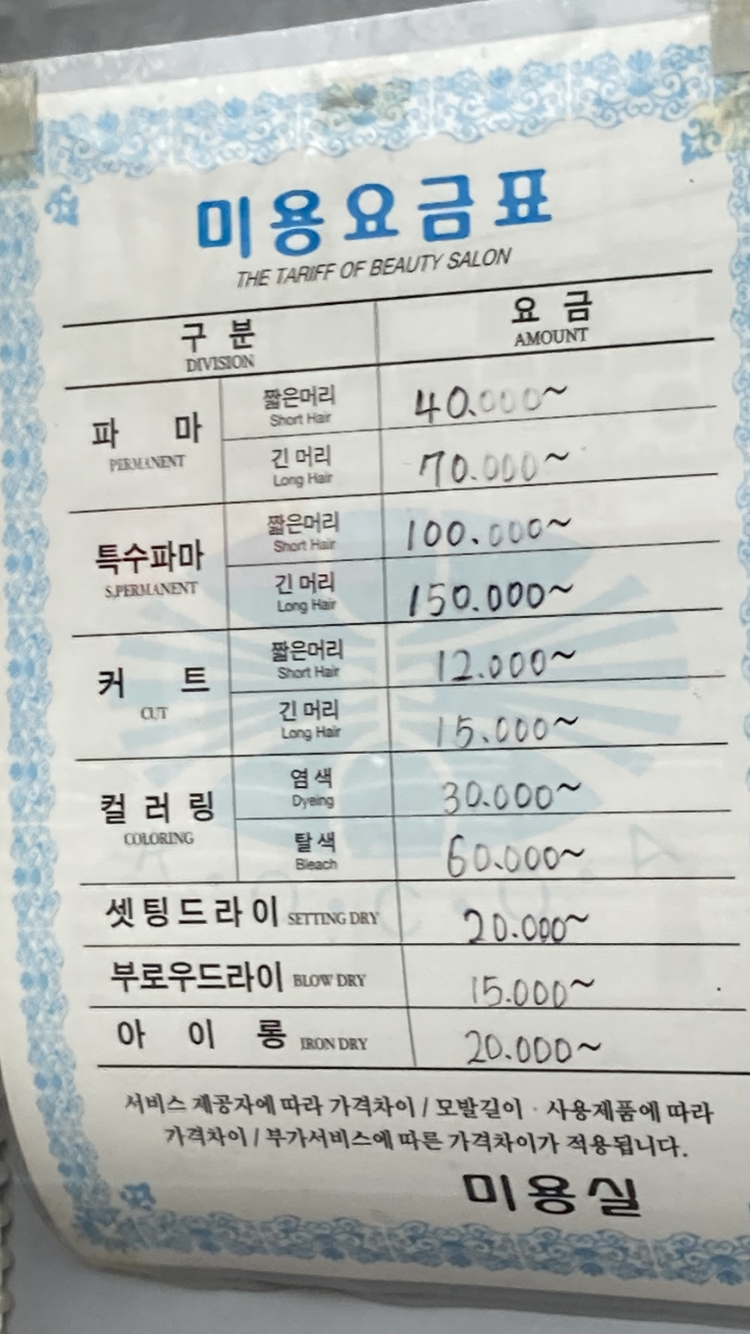 미용요금표
THE TARIFF OF BEAUTY SALON
구 분 요 금
DIVISION AMOUNT
파 마 짧은머리 40.000~
PERMANENT Short Hair
긴 머리 70.000~
Long Hair
특수파마 짧은머리 100.000~
S.PERMANENT Short Hair
긴 머리 150.000~
Long Hair
커 트 짧은머리 12.000~
CUT Short Hair
긴 머리 15.000~
Long Hair
컬 러 링 염 색 30.000~
COLORING Dyeing
탈 색 60.000~
Bleach
셋 팅 드 라 이 SETTING DRY 20.000~
부로우드라이 BLOW DRY 15.000~
아 이 롱 IRON DRY 20.000~
서비스 제공자에 따라 가격차이 / 모발길이 · 사용제품에 따라
가격차이 / 부가서비스에 따른 가격차이가 적용됩니다.
미용실